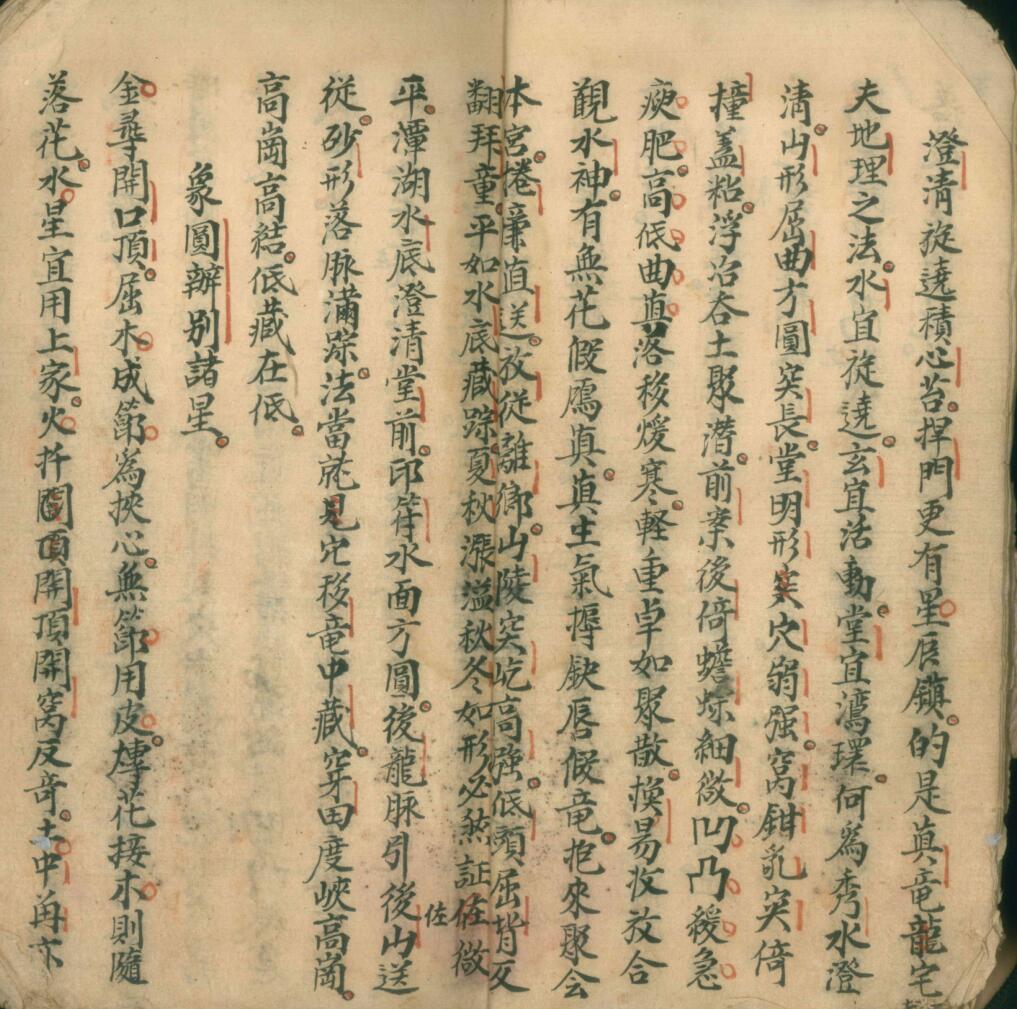 澄清旋遶積心苔捍門更有星辰鎮的是眞竜龍宅
夫地理之法水宜旋遶玄宜活動堂宜灣環何爲秀水澄
清山形屈曲方圓突長堂明形突穴弱强窩鉗乳突倚
撞蓋粘浮沿吞土聚潜前案後倚蟾蜍細微凹凸緩急
瘦肥高低曲真落移煖寒軽重卓如聚散換易收放合
覩水神有無花假鴈真真生氣摶缺唇假竜抱來聚会
本宮捲簾直送放從離鄉山陵突屹高强低頭屈背反
翻拜童平如水底藏踪夏秋漲溢秋冬如形必煞証佐微
佐
平潭湖水底澄清堂前印符水面方圓後龍脉引後山送
從砂形落脉滿踪法當龍見穴移竜中藏穿田度峽高崗
高崗高結低藏在低
象圓辨別諸星
金尋開口頂屈木成節爲挾心無節用皮塼花接木則隨
落花水星宜用上家火扦開頂開窩反奇土中角亦